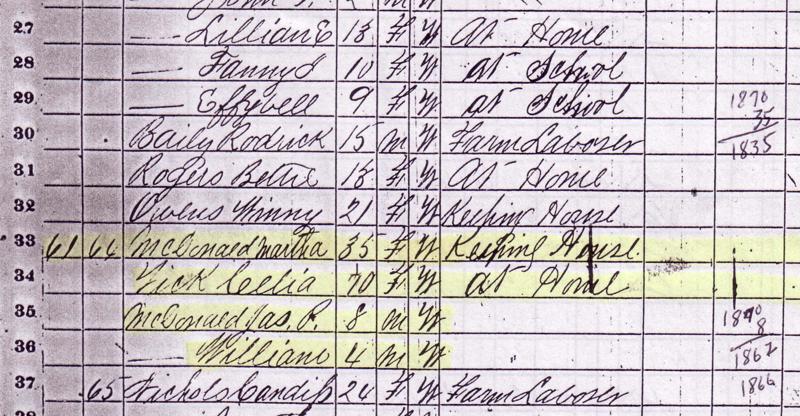 27 — Lillian E 13 F W At Home
28 — Fanny I 10 F W at School
29 — Effybell 9 F W at School
30 Baily Rodrick 15 m W Farm Laborer
31 Rogers Bettie 13 F W At Home
32 Owens Winny 21 F W Keeping House
33 61 64 McDonald Martha 35 F W Keeping House
34 Vick Celia 70 F W at Home
35 McDonald Jas. R. 8 m W
36 — William 4 m W "
37 65 Nichols Candis 24 F W Farm Laborer
1870
35
1835
1870
8
1862
1866